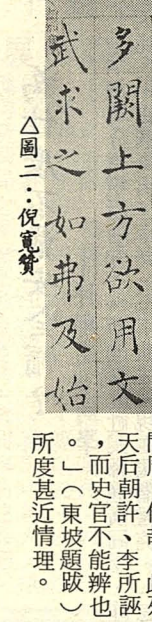 多闕上方欲用文
武求之如弗及始
△圖二：倪寬贊
天后朝許、李所誣
，而史官不能辨也
。」（東坡題跋）
所度甚近情理。